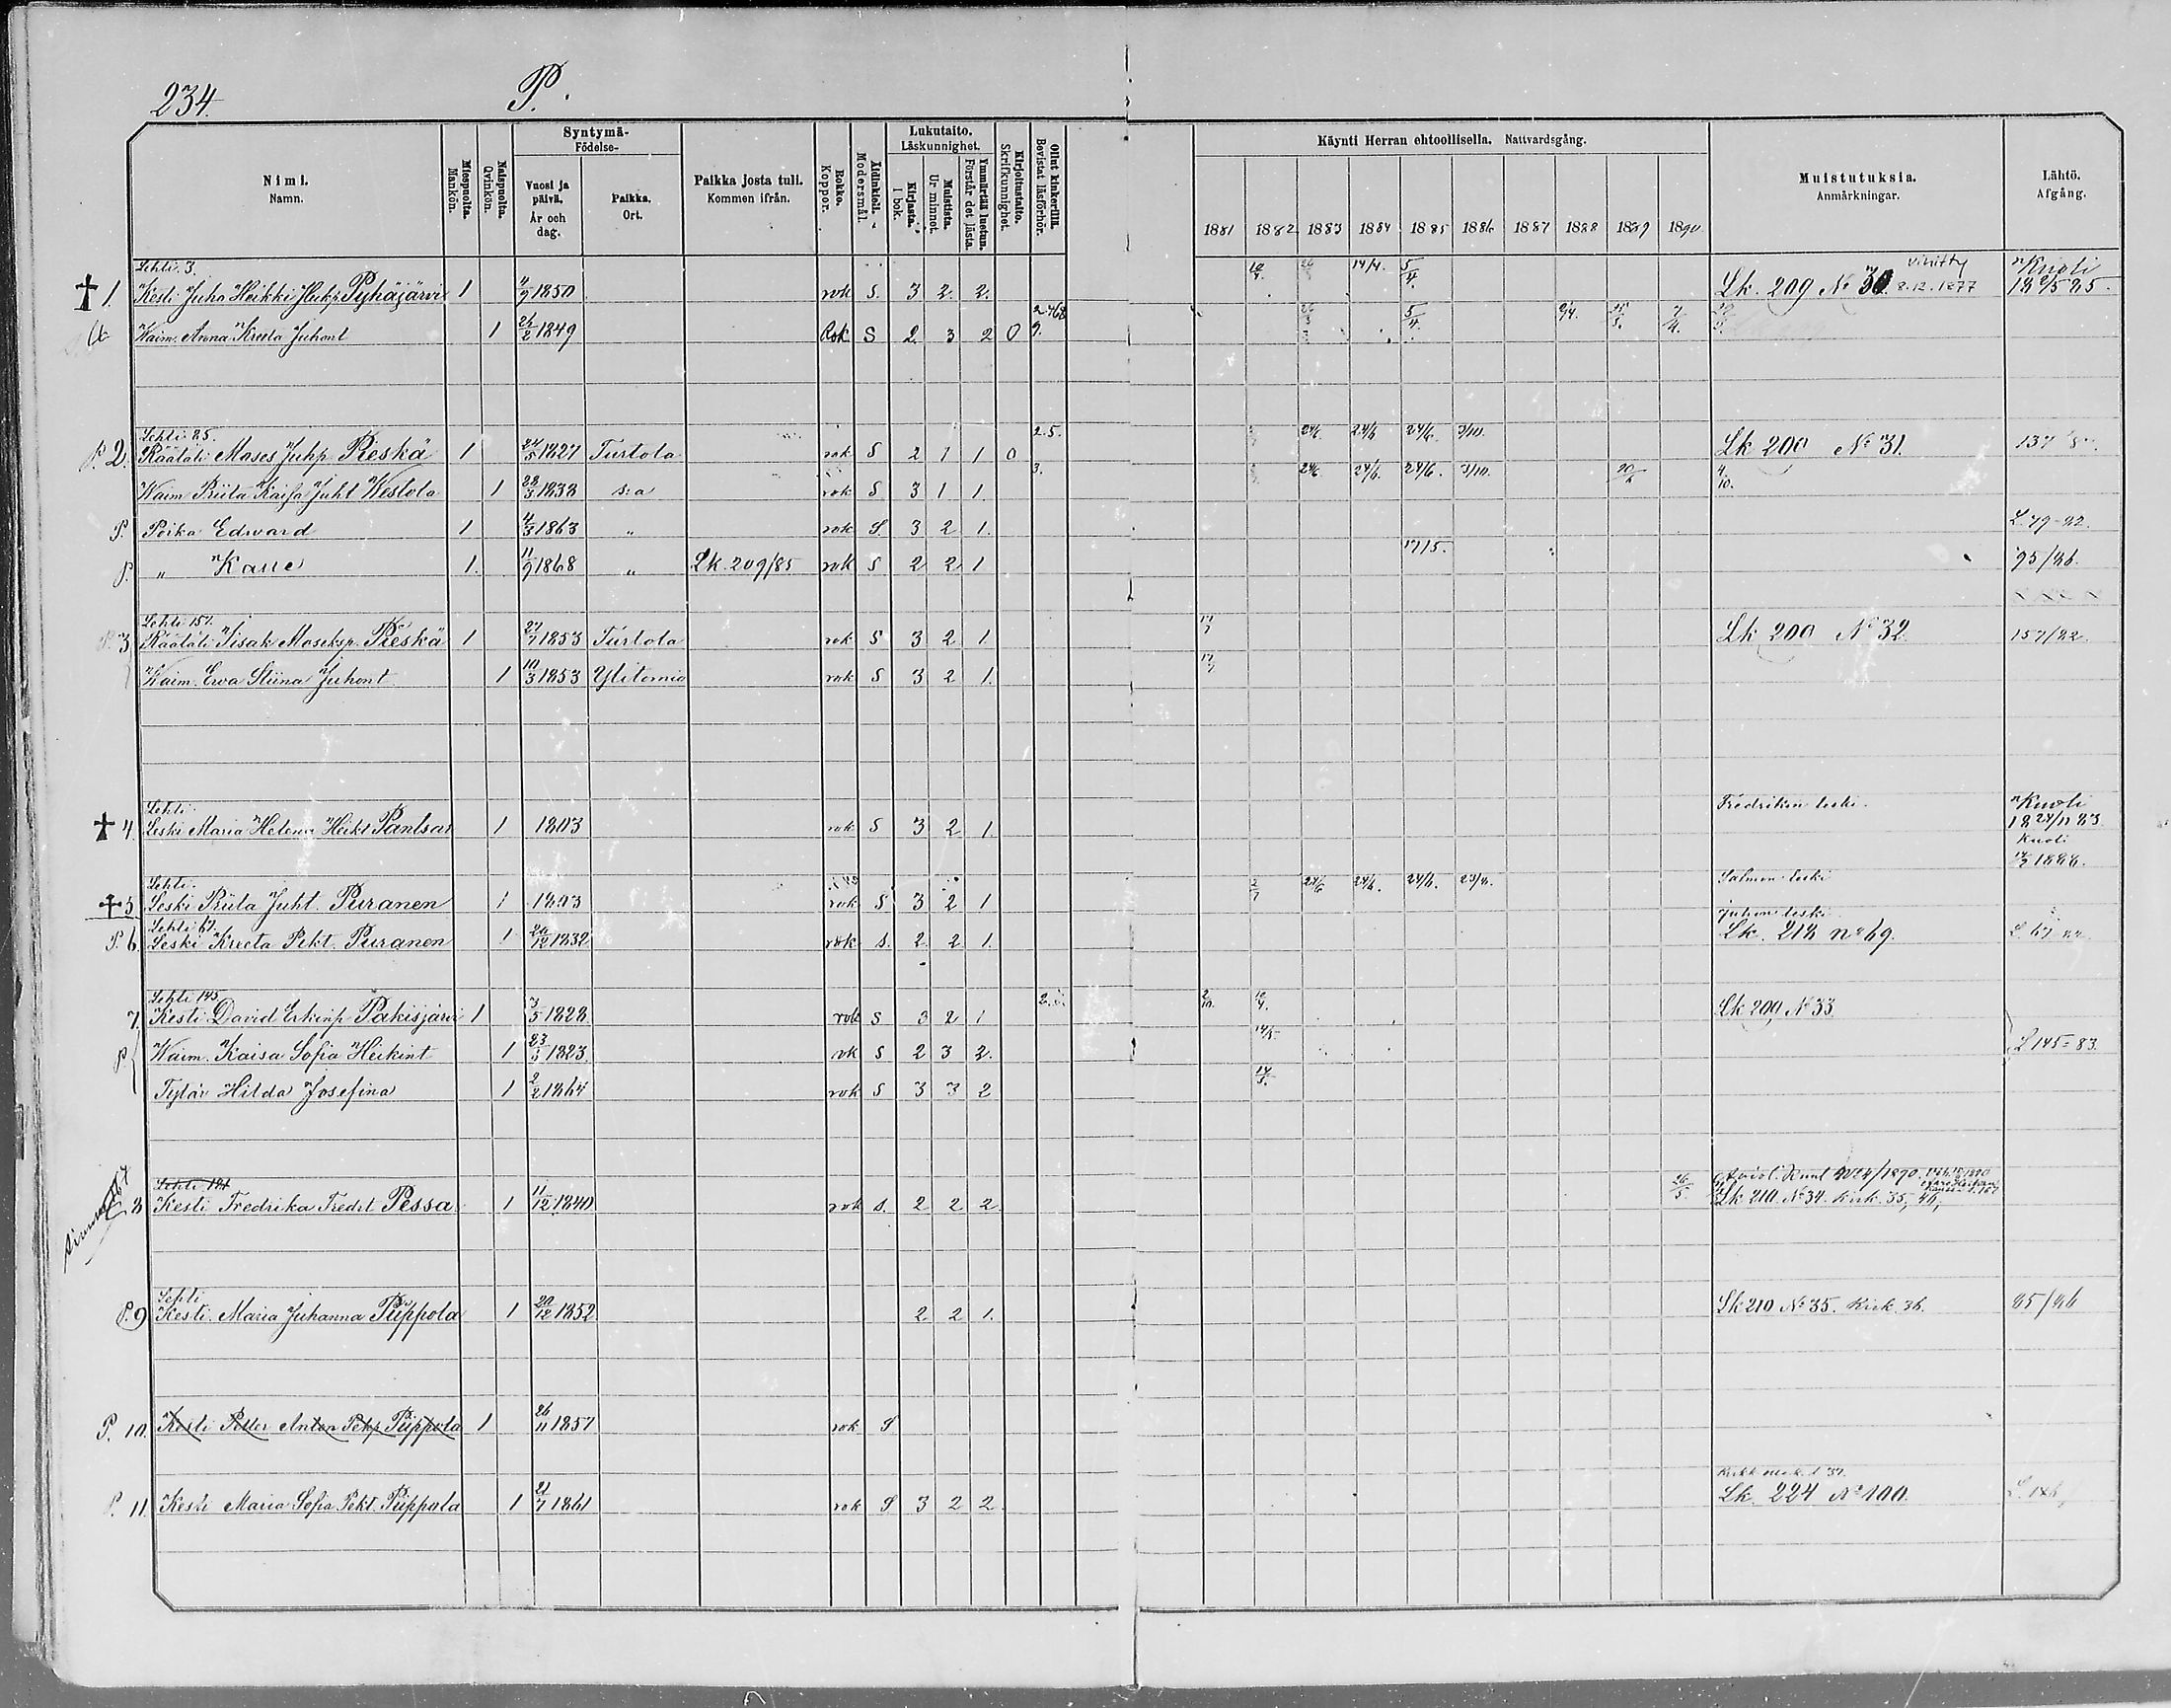 234.
P.
Nimi.
Namn.
Miespuolta.
Mankön.
Naispuolta.
Qvinkön.
Syntymä-
Födelse-
Vuosi ja
päivä.
År och
dag.
Paikka.
Ort.
Paikka josta tuli.
Kommen ifrån.
Rokko.
Koppor.
Äidinkieli.
Modersmål.
Lukutaito.
Läskunnighet.
Kirjasta.
I bok.
Muistista.
Ur minnet.
Ymmärtää luetun.
Förstår det lästa.
Kirjoitustaito.
Skrifkunnighet.
Ollut kinkerillä.
Bevistat läsförhör.
Käynti Herran ehtoollisella. Nattvardsgång.
1881 1882 1883 1884 1885 1886 1887 1888 1889 1890
Muistutuksia.
Anmärkningar.
Lähtö.
Afgång.
Lehti 3.
1. Kesti Juho Heikki Heikp Pyhäjärvi 1 4/9 1850 rok S. 3 2. 2. 14/4. 5/4. Lk. 209 No 30. vihitty 2.12.1877 Kuoli
Waim. Anna Kreeta Juhont 1 1849 Rok S 2 3 2 0 9. 5/4. 9/4.
Lehti 85.
P. 2. Räätäli Moses Juhp Pieskä 1 24/5 1827 Turtola rok S 2 1 1 0 2.5. 24/6 24/6 24/6 3/10. Lk 200 No 31. 137
Waim Priita Kaisa Juht Westola 1 28/3 1833 s:a rok S 3 1 1. 3. 24/6. 24/6. 24/6. 3/10. 4/10.
P. Poika Edward 1 4/3 1863 " rok S. 3 2 1. L. 79-82.
P. " Kalle 1. 11/9 1868 " Lk. 209/85 rok S 2 2 1 17/5. 95/86.
Lehti 157.
P. 3 Räätäli Iisak Moseksp. Pieskä 1 27/7 1853 Turtola rok S 3 2 1 17/7 Lk 200 No 32. 157/82.
Waim. Ewa Stiina Juhont 1 10/3 1853 Ylitornio rok S 3 2 1. 17/7
Lehti
4. Leski Maria Helena Heikt Pantsar 1 1803 rok S 3 2 1. Fredrikin leski. Kuoli
18 24/11 83.
Kuoli
1888.
Lehti.
5 Leski Priita Juht. Puranen 1 1803 rok S 3 2 1 2/7 24/6 24/6. 24/6. Salmon leski
Lehti 67.
P. 6. Leski Kreeta Pekt. Puranen 1 20/12 1832 rok s. 2 2 1. Juhon leski
Lk. 218 no 69.
Lehti 145
7. Kesti David Erkinp Pakisjärvi 1 3/5 1828 rok S 3 2 1 2/10. Lk 209 No 33
P. Waim. Kaisa Sofia Heikint 1 23/3 1823. rok S 2 3 2. L 145-83.
Tytär Hilda Josefina 1 2/2 1864 rok S 3 3 2
Lehti 181
8 Kesti Fredrika Fredrt Pessa 1 11/12 1840 rok s. 2 2 2 26/5. Lk 210 No 34. Kirk. 35, 46,
Lehti
P. 9 Kesti. Maria Juhanna Piippola 1 20/12 1852 2 2 1. Lk 210 No 35. Kirk. 36. 85/86
P. 10. Kesti Petter Anton Pekp Piippola 1 26/11 1857 rok S
P. 11. Kesti Maria Sofia Pekt. Piippola 1 21/7 1861 rok S 3 2 2 Lk. 224 No 100.